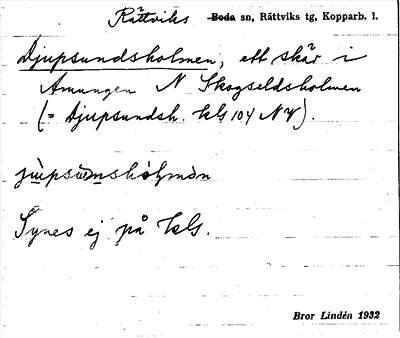 Rättviks Boda sn, Rättviks tg, Kopparb. l.
Djupsundsholmen, ett skär i
Amungen N Skogseldsholmen
(= Djupsundsh. kls 104 NV).
Synes ej på kls.
Bror Lindén 1932